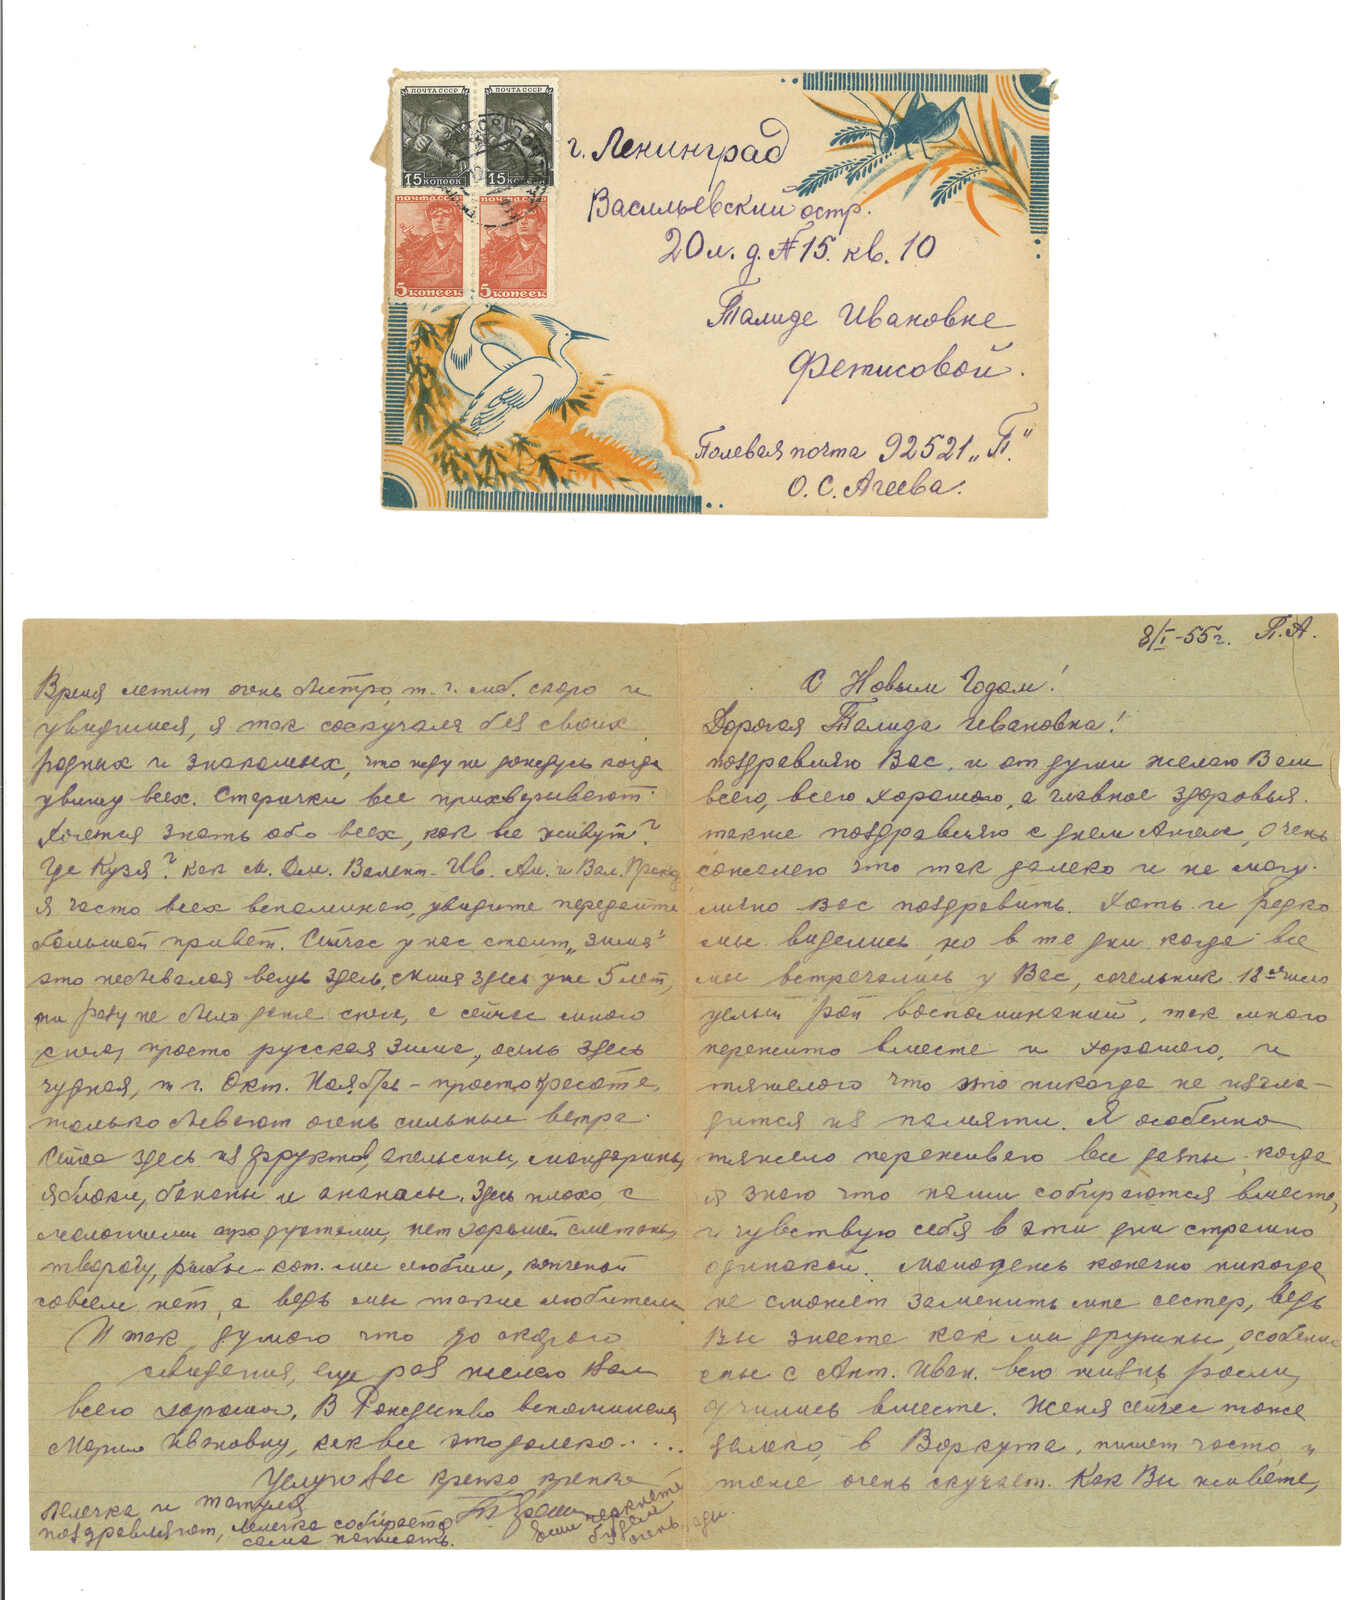 ПОЧТА СССР
15 КОПЕЕК
ПОЧТА СССР
15 КОПЕЕК
ПОЧТА СССР
5 КОПЕЕК
ПОЧТА СССР
5 КОПЕЕК
г. Ленинград
Васильевский остр.
20 л. д. № 15. кв. 10
Талиде Ивановне
Фетисовой.
Полевая почта 92521 „П."
О. С. Агеева.
8/I-55 г. П.А.
С Новым Годом!
Дорогая Талида Ивановна!
поздравляю Вас, и от души желаю Вам
всего, всего хорошого, а главное здоровья.
также поздравляю с днем Ангела, очень
сожалею что так далеко и не могу
лично Вас поздравить. Хоть и редко
мы виделись, но в те дни когда все
мы встречались у Вас, сочельник 18ого число
целый рой воспоминаний, так много
пережито вместе и хорошого, и
тяжелого что это никогда не изгла-
дится из памяти. Я особенно
тяжело переживаю все даты, когда
я знаю что наши собираются вместе,
и чувствую себя в эти дни страшно
одинокой. Молодежь конечно никогда
не сможет заменить мне сестер, ведь
Вы знаете как мы дружны, особенно
мы с Ант. Иван. всю жизнь росли,
учились вместе. Женя сейчас тоже
далеко, в Воркуте, пишет часто и
тоже очень скучает. Как Вы живете,
Время летит очень быстро, т. г. скоро и
увидимся, я так соскучала без своих
родных и знакомых, что жду не дождусь когда
увижу всех. Старички все прихварывают
Хочется знать обо всех, как все живут?
Где Кузя? Как М. Дм. Валент. Ив. Ан. и Вал.
Я часто всех вспоминаю, увидите передайте
большой привет. Сейчас у нас стоит „зима"
это небывалая вещь здесь, мы здесь уже 5 лет,
ни разу не было даже снега, а сейчас много
снега, просто русская зима, осень здесь
чудная, т. г. Окт. Ноябрь - просто красота,
только бывают очень сильные ветра.
Сейчас здесь из фруктов, апельсины, мандарины,
яблоки, бананы и ананасы. Здесь плохо с
молочными продуктами, нет хорошей сметаны,
творогу, рыбы кот. мы любим, копченой
совсем нет, а ведь мы такие любители
Итак, думаю что до скорого
свидания, еще раз желаю Вам
всего хорошого. В Рождество вспоминала
Марию Ивановну, как все это далеко....
Целую Вас крепко крепко
Лелечка и
поздравляют, Лелечка собирается
сама написать.
Если черкнете
будем
очень рады.